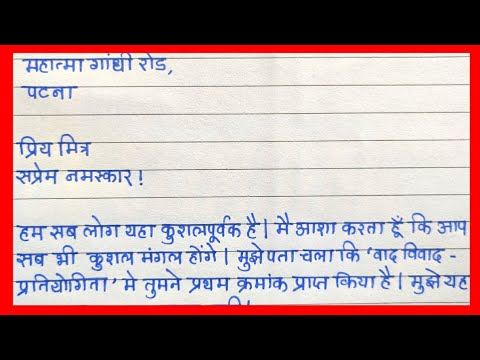 महात्मा गांधी रोड,
पटना
प्रिय मित्र
सप्रेम नमस्कार!
हम सब लोग यहा कुशलपूर्वक है। मै आशा करता हूँ कि आप
सब भी कुशल मंगल होंगे। मुझे पता चला कि 'वाद विवाद -
प्रतियोगिता' मे तुमने प्रथम क्रमांक प्राप्त किया है। मुझे यह